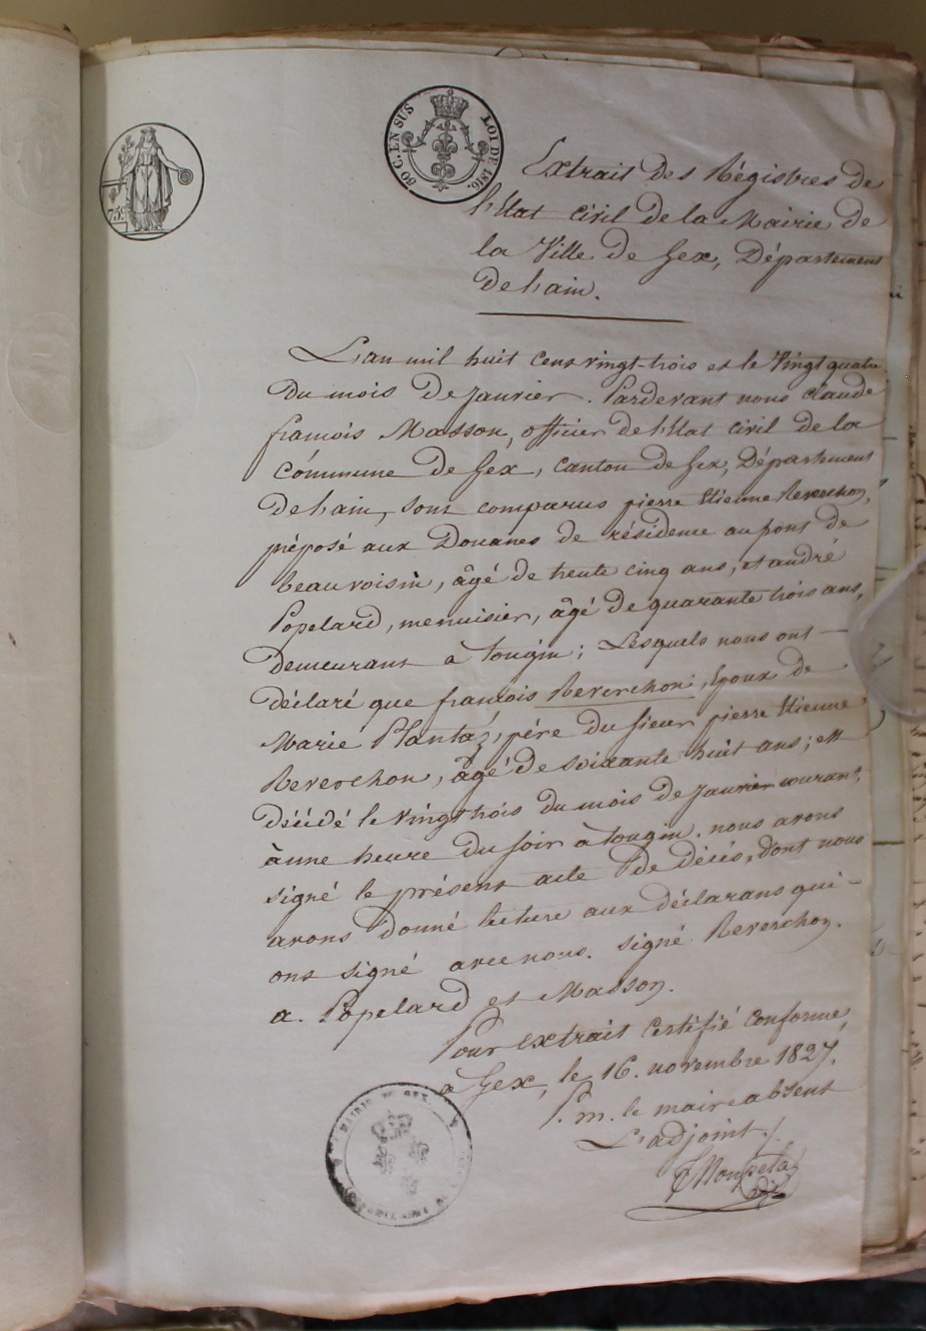 50 C. EN SUS LOI DE 1816.
75 c
Extrait Des Régistres de
l'Etat civil de la Mairie de
la Ville de Gex, Département
de l'ain.
L'an mil huit cent vingt-trois et le Vingt quatre
du mois De janvier. Pardevant nous claude
françois Masson, officier de l'Etat civil de la
Commune de Gex, canton de Gex, Département
de l'ain, sont comparus pierre Etienne Reverchon,
préposé aux Douanes de résidence au pont de
beauvoisin, âgé de trente cinq ans, et andré
Popelard, menuisier, âgé de quarante trois ans,
Demeurant à tougin; Lesquels nous ont
déclaré que françois Reverchon, Epoux de
Marie Plantaz, père du sieur pierre Etienne
Reverchon, âgé de soixante huit ans; est
Décédé le vingt trois du mois de janvier courant,
à une heure du soir à tougin. nous avons
signé le présent acte de décès, dont nous
avons donné lecture aux déclarans qui
ont signé avec nous. signé Reverchon.
a. Popelard et Masson.
Pour extrait Certifié Conforme,
à Gex, le 16. novembre 1827.
P. m. le maire absent
L'adjoint./.
MAIRIE DE GEX